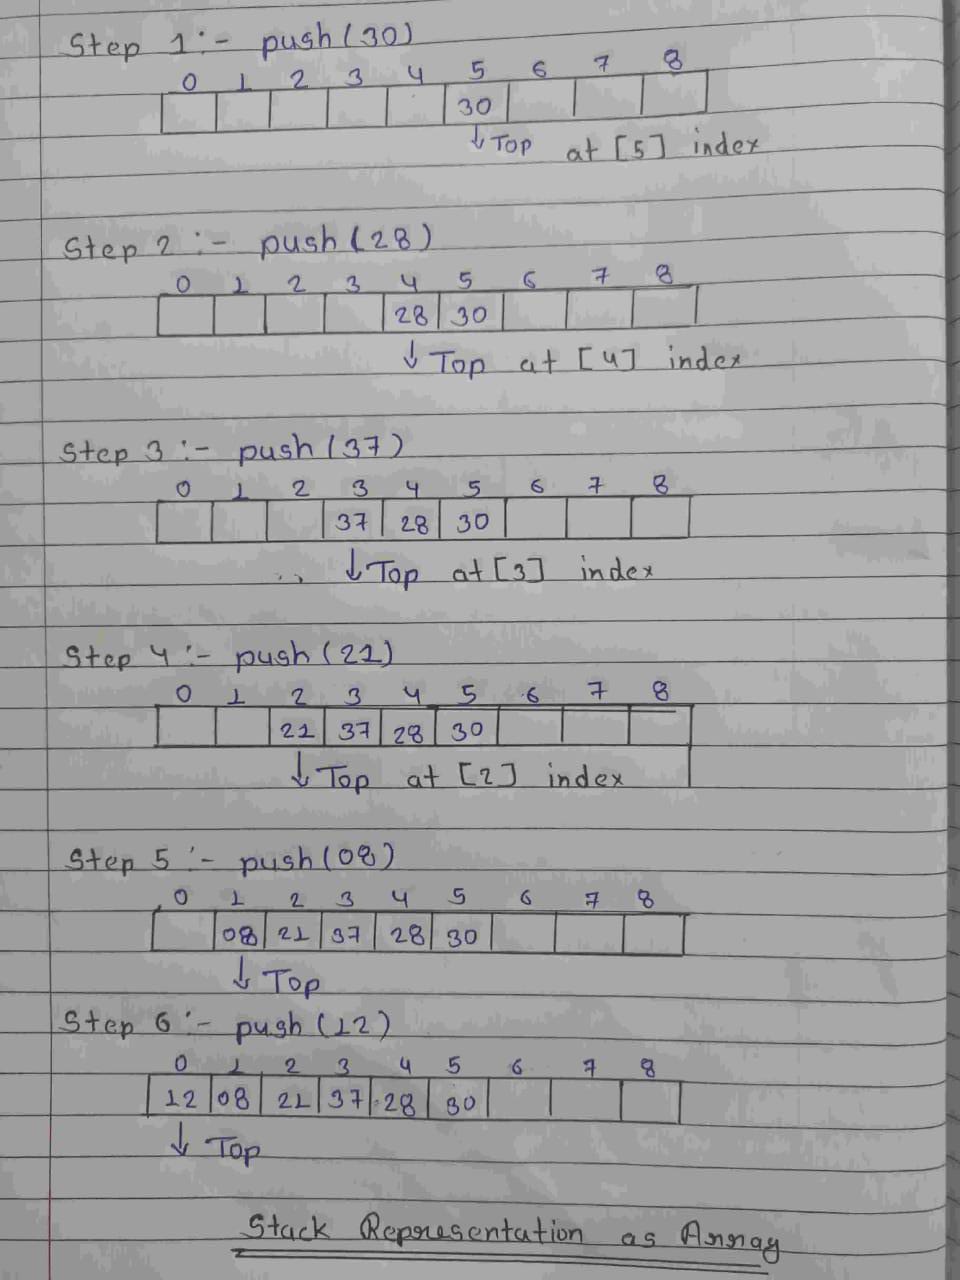 Step 1 :- push(30)
0 1 2 3 4 5 6 7 8
30
↓ Top at [5] index
Step 2 :- push(28)
0 1 2 3 4 5 6 7 8
28 30
↓ Top at [4] index
Step 3 :- push(37)
0 1 2 3 4 5 6 7 8
37 28 30
↓ Top at [3] index
Step 4 :- push(21)
0 1 2 3 4 5 6 7 8
21 37 28 30
↓ Top at [2] index
Step 5 :- push(08)
0 1 2 3 4 5 6 7 8
08 21 37 28 30
↓ Top
Step 6 :- push(12)
0 1 2 3 4 5 6 7 8
12 08 21 37 28 30
↓ Top
Stack Representation as Array